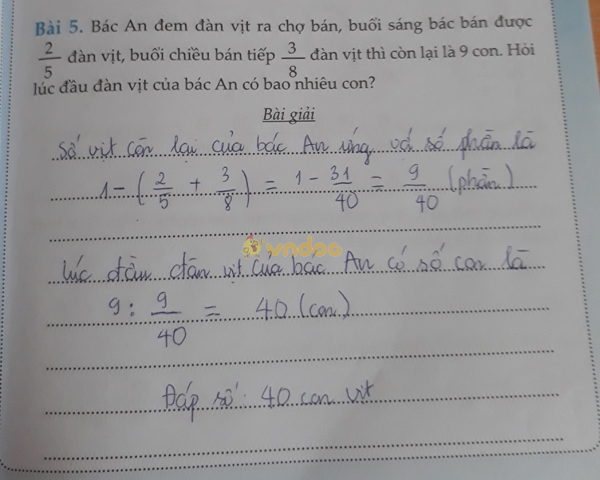 Bài 5. Bác An đem đàn vịt ra chợ bán, buổi sáng bác bán được
2/5 đàn vịt, buổi chiều bán tiếp 3/8 đàn vịt thì còn lại là 9 con. Hỏi
lúc đầu đàn vịt của bác An có bao nhiêu con?
Bài giải
Số vịt còn lại của bác An ứng với số phần là
1 - (2/5 + 3/8) = 1 - 31/40 = 9/40 (phần)
vndoo
lúc đầu đàn vịt của bác An có số con là
9 : 9/40 = 40 (con)
Đáp số: 40 con vịt